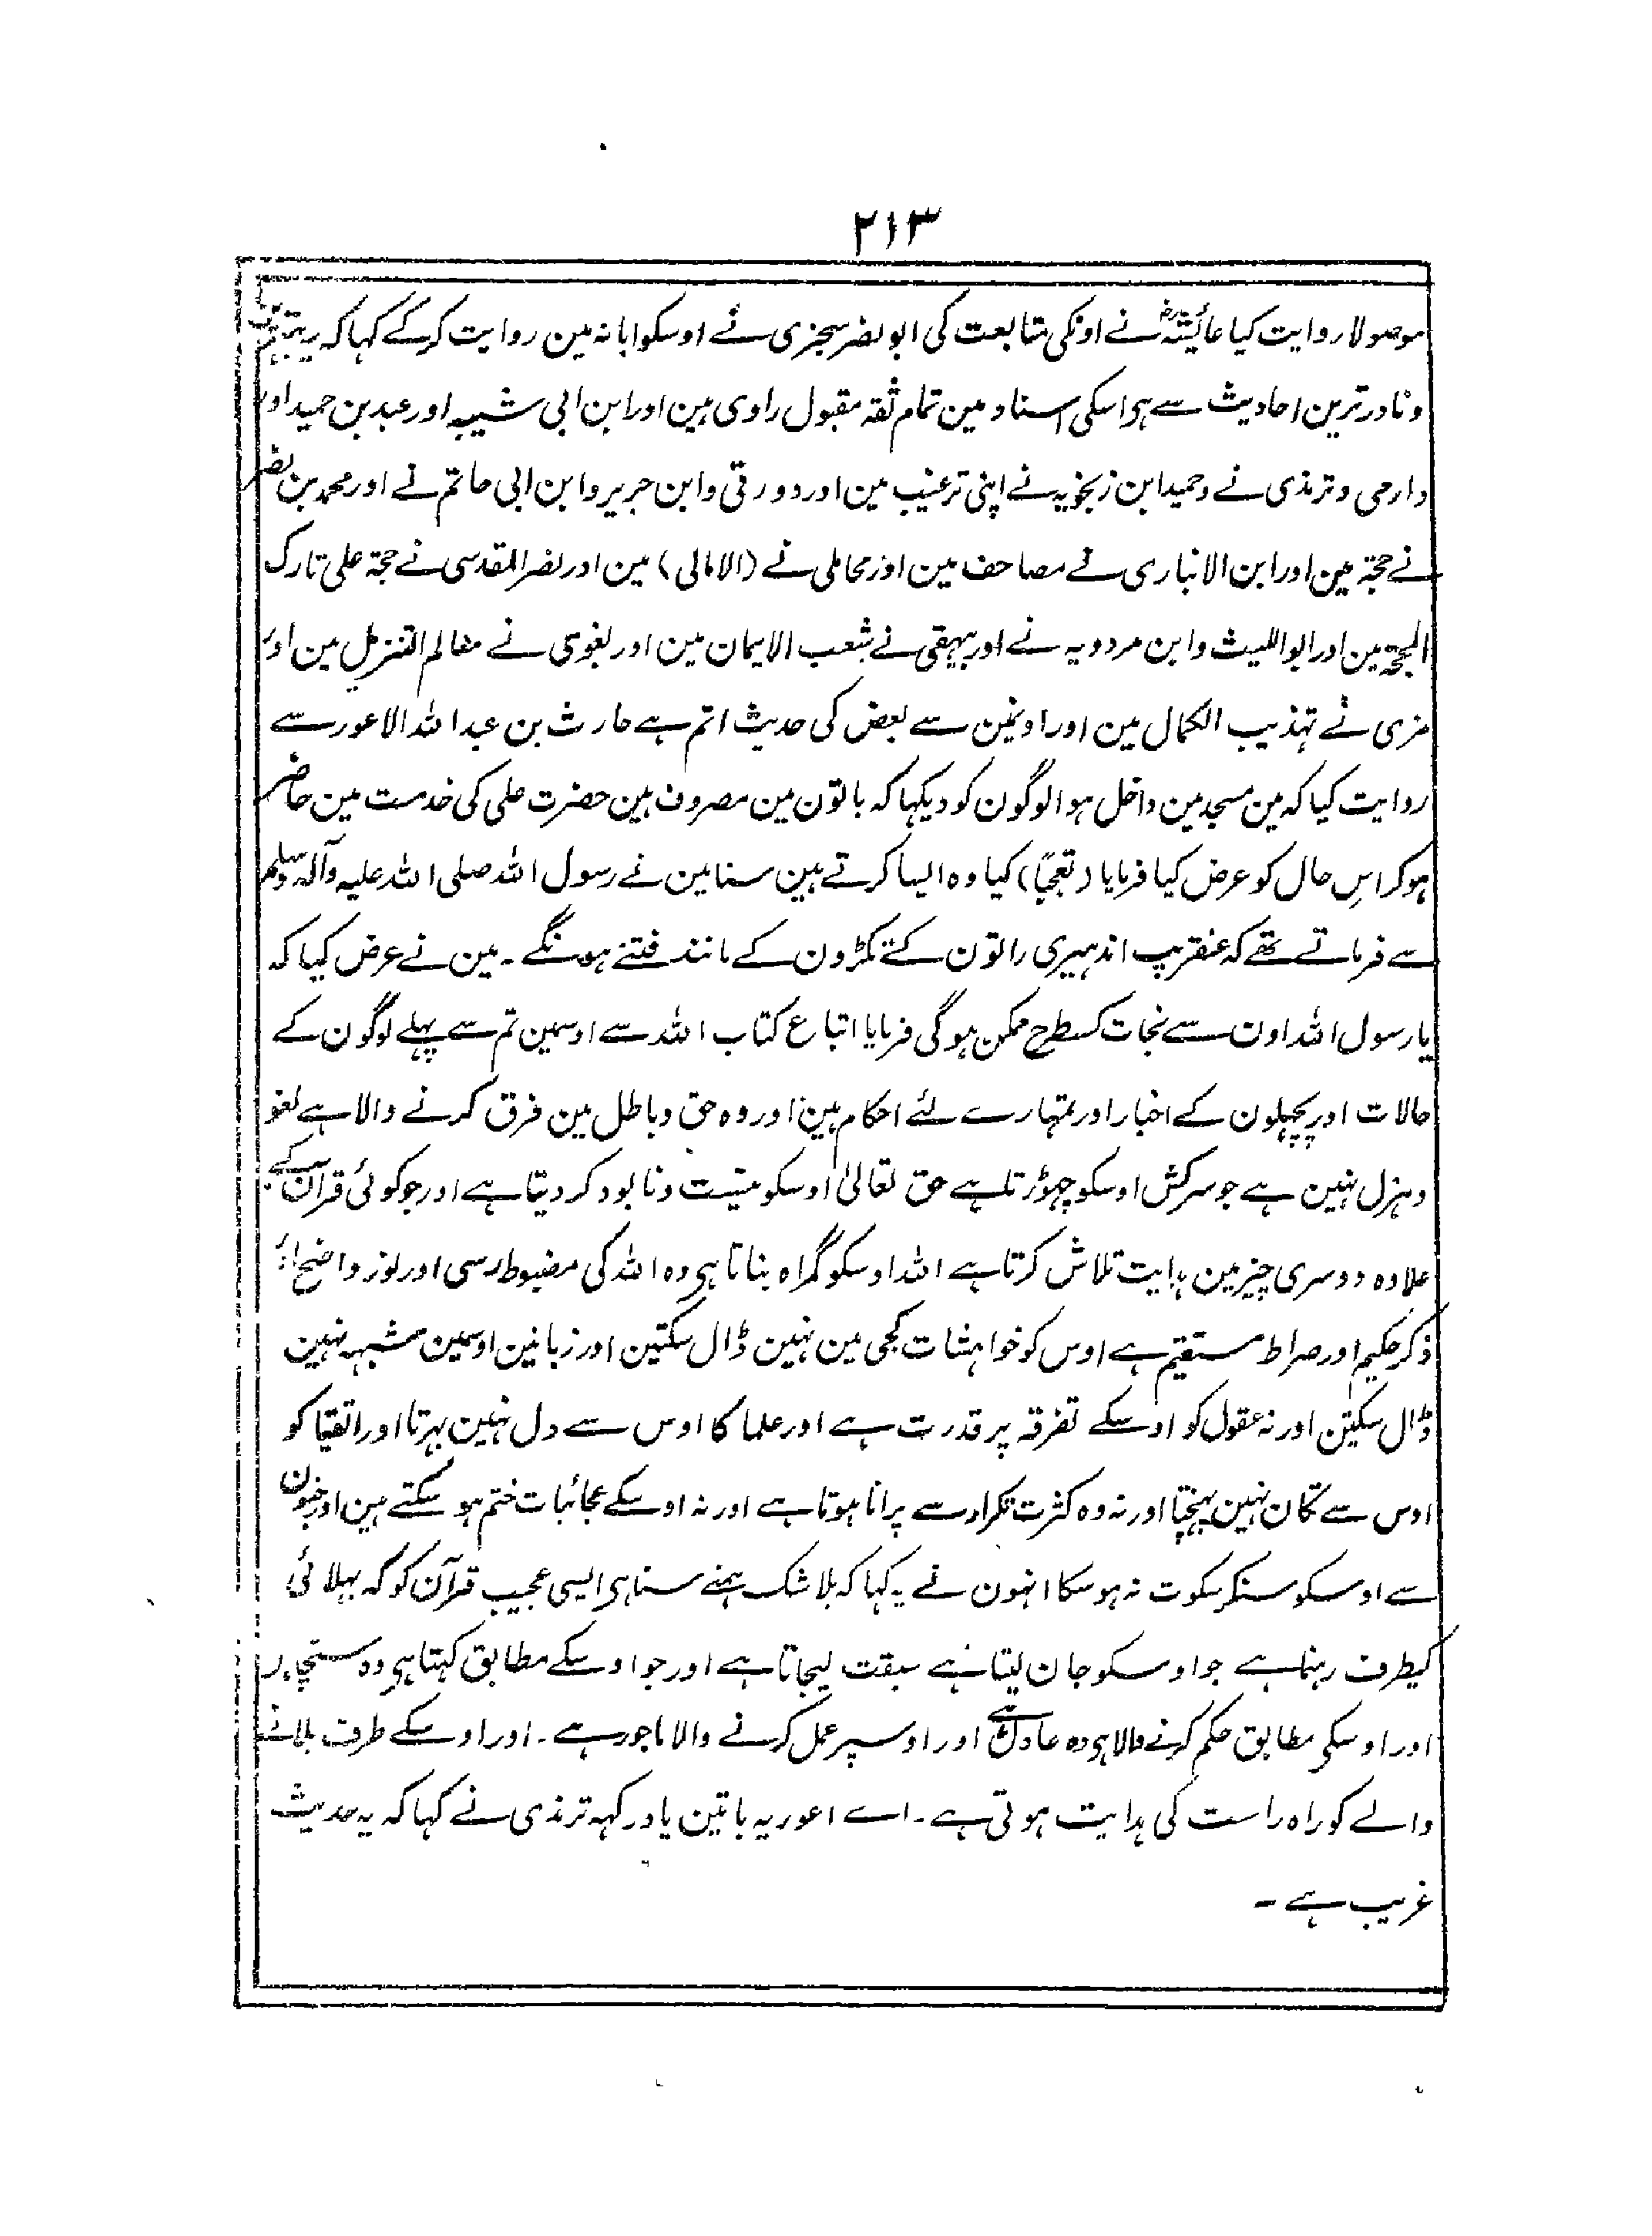 ۲۱۳
موصولا روایت کیا عائیشہؓ نے اونکی متابعت کی ابو نصر سجزی نے اوسکو ابانہ مین روایت کرکے کہا کہ یہ
و نادر ترین احادیث سے ہو اسکی اسناد مین تمام ثقہ مقبول راوی ہین اور ابن ابی شیبہ اور عبد بن حمید اور
دارمی و ترمذی نے و حمید ابن زنجویہ نے اپنی ترغیب مین اور دورقی و ابن جریر و ابن ابی حاتم نے اور محمد بن نصر
نے حجۃ مین اور ابن الانباری نے مصاحف مین اور محاملی نے (الامالی) مین اور نصر المقدسی نے حجۃ علی تارک
المحجۃ مین اور ابو اللیث و ابن مردویہ نے اور بیہقی نے شعب الایمان مین اور بغوی نے معالم التنزیل مین اور
مزی نے تہذیب الکمال مین اور اونمین سے بعض کی حدیث اتم ہے حارث بن عبد اللہ الاعور سے
روایت کیا کہ مین مسجد مین داخل ہوا لوگون کو دیکہا کہ باتون مین مصروف ہین حضرت علی کی خدمت مین حاضر
ہوکر اسِ حال کو عرض کیا فرمایا (تعجبًا) کیا وہ ایسا کرتے ہین سنا مین نے رسول اللہ صلی اللہ علیہ وآلہ وسلم
سے فرماتے تھے کہ عنقریب اندہیری راتون کے ٹکڑون کے مانند فتنے ہونگے۔ مین نے عرض کیا کہ
یا رسول اللہ اون سے نجات کسطرح ممکن ہوگی فرمایا اتباع کتاب اللہ سے اوسمین تم سے پہلے لوگون کے
حالات اور پچہلون کے اخبار اور تمہارے لئے احکام ہین اور وہ حق و باطل مین فرق کرنے والا ہے لغو
و ہزل نہین ہے جو سرکش اوسکو چہوڑتا ہے حق تعالیٰ اوسکو نیست و نابود کردیتا ہے اور جو کوئی قرآن کے
علاوہ دوسری چیز مین ہدایت تلاش کرتا ہے اللہ اوسکو گمراہ بناتا ہی وہ اللہ کی مضبوط رسی اور نور واضح اور
ذکر حکیم اور صراط مستقیم ہے اوس کو خواہشات کجی مین نہین ڈال سکتین اور زبانین اوسمین مشبہہ نہین
ڈال سکتین اور نہ عقول کو اوسکے تفرقہ پر قدرت ہے اور علما کا اوس سے دل نہین بہرتا اور اتقیا کو
اوس سے تکان نہین پہنچتا اور نہ وہ کثرت تکرار سے پرانا ہوتا ہے اور نہ اوسکے عجائبات ختم ہوسکتے ہین اور جنون
سے اوسکو سنکر سکوت نہ ہوسکا انہون نے یہ کہا کہ بلا شک ہمنے سنا ہی ایسی عجیب قرآن کو کہ بہلائی
کیطرف رہنما ہے جو اوسکو جان لیتا ہے سبقت لیجاتا ہے اور جو اوسکے مطابق کہتا ہی وہ سچا ہے
اور اوسکی مطابق حکم کرنے والا ہی وہ عادل ہے اور اوسپر عمل کرنے والا ماجور ہے۔ اور اوسکے طرف بلانے
والے کو راہ راست کی ہدایت ہوتی ہے۔ اے اعور یہ باتین یاد رکہہ ترمذی نے کہا کہ یہ حدیث
غریب ہے ۔